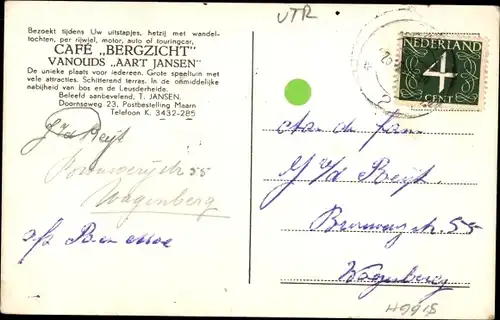 UTR
Bezoekt tijdens Uw uitstapjes, hetzij met wandel-
tochten, per rijwiel, motor, auto of touringcar,
CAFÉ „BERGZICHT"
VANOUDS „AART JANSEN"
De unieke plaats voor iedereen. Grote speeltuin met
vele attracties. Schitterend terras. In de onmiddellijke
nabijheid van bos en de Leusderheide.
Beleefd aanbevelend, T. JANSEN.
Doornseweg 23, Postbestelling Maarn
Telefoon K. 3432-285
v/d Reijt
55
Wagenberg
NEDERLAND
4
CENT
Aan de fam.
v/d Reijt
Brouwerij str. 55
Wagenberg